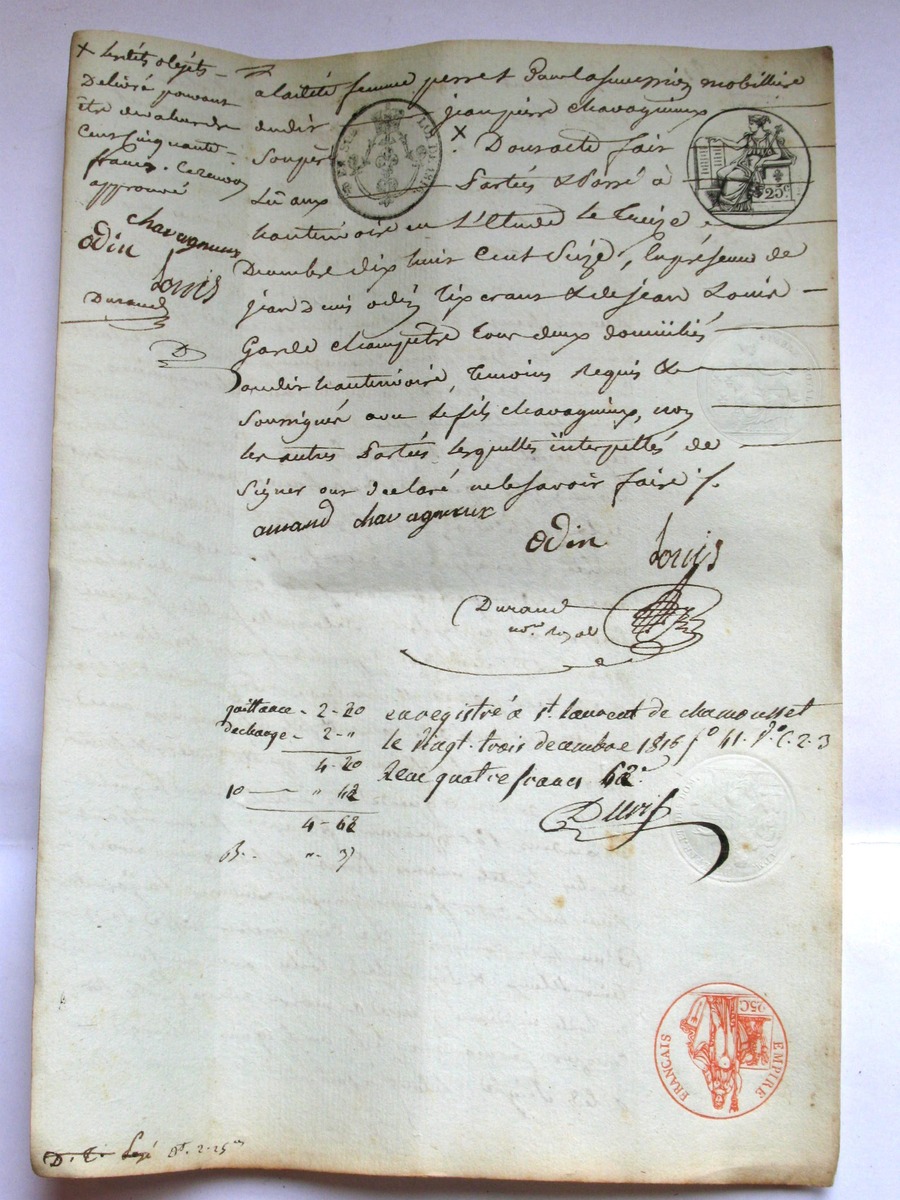 × lesdits objets
Délivré pouvant
être de valeur de
Cent cinquante
francs. Ce renvoi
approuvé
chavagneux
Odin
Louis
Durand
D
a ladite femme perret Pour la succession mobilliere
dudit jean pierre chavagnieux
Son père × Dont acte fait
Lû aux Parties & Passé à
hauterivoire en L'Etude Le Treize
Decembre Dix huit Cent Seize, En présence de
jean Denis odin Tixerant & de jean Louis
Garde champêtre Tous deux domiciliés
audit hauterivoire, Témoins Requis &
Soussignés avec Le fils chavagnieux, non
les autres Parties lesquelles interpellés de
Signer ont declaré ne le savoir faire ./.
amand chavagneux
Odin Louis
Durand
no.re royal
quittance - 2 - 20
decharge - 2 - "
4 - 20
10 — " 42
4 - 62
enregistré a St. Laurent de chamousset
le vingt-trois decembre 1816 fo 41 Vo C. 2-3
Recu quatre francs 62c.
LOI DE 181
25c
EMPIRE
FRANÇAIS
25C
2-25